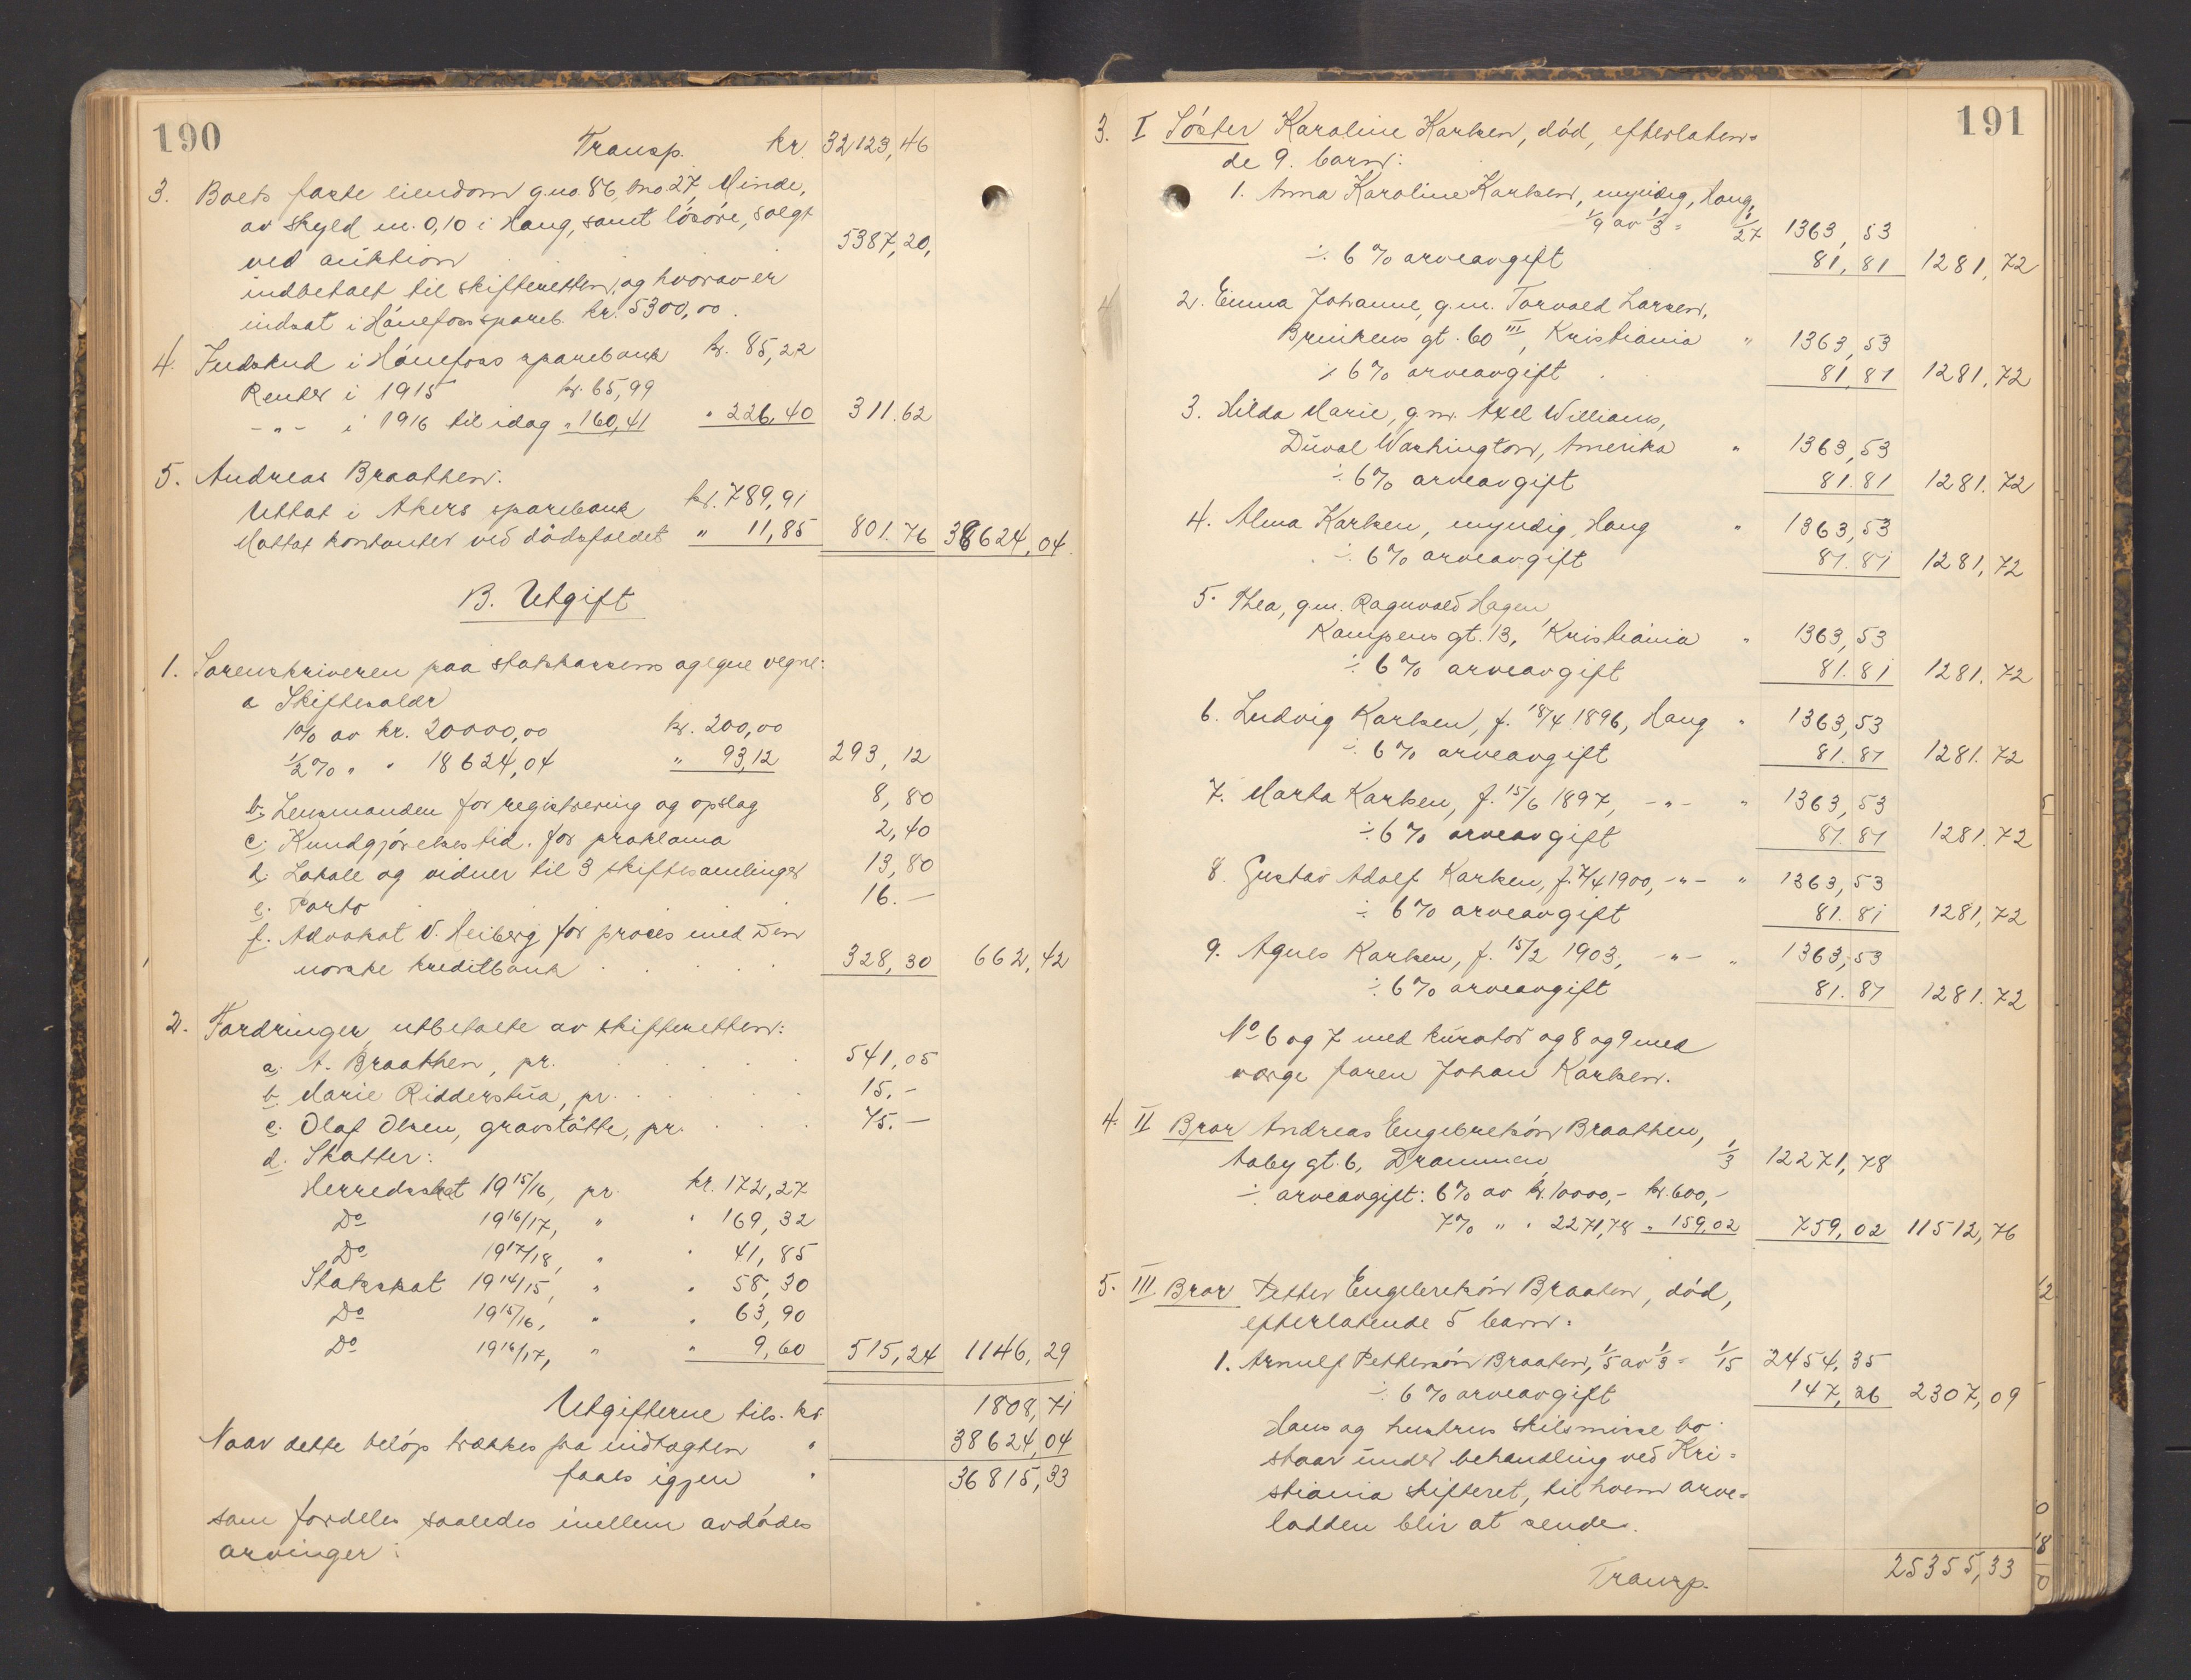 190
Transp. kr. 32123,46
3. Boets faste eiendom g.no. 86, bno. 27, Minde,
av skyld m. 0,10 i Haug, samt løsøre, solgt
ved auktion 5387,20,
indbetalt til skifteretten, og hvorav er
indsat i Hönefoss spareb. kr. 5300,00.
4. Indskud i Hönefoss sparebank kr. 85,22
Renter i 1915 kr. 65,99
-"- i 1916 til idag " 160,41 " 226,40 311.62
5. Andreas Braathen:
Uttat i Akers sparebank kr. 789,91
Mottat kontanter ved dödsfaldet " 11,85 801.76 38624,04.
B. Utgift
1. Sorenskriveren paa statskassens og egne vegne:
a Skiftesaldr
1% av kr. 20000,00 kr. 200,00
1/2% " " 18624,04 " 93,12 293,12
b. Lensmanden for registrering og opslag 8,80
c. Kundgjörelsestid. for proklama 2,40
d. Lokale og vidner til 3 skiftesamlinger 13,80
e. Porto 16.-
f. Advokat V. Heiberg for proces med Den
norske kreditbank 328,30 662,42
2. Fordringer, utbetalte av skifteretten:
a. A. Braathen, pr. 541,05
b. Marie Ridderstua, pr. 15.-
c. Olaf Olsen, gravstötte, pr. 75.-
d. Skatter:
Herredsskat 1915/16, pr. kr. 172,27
Do 1916/17, " " 169,32
Do 1917/18, " " 41,85
Statsskat 1914/15, " " 58,30
Do 1915/16, " " 63,90
Do 1916/17, " " 9,60 515,24 1146,29
Utgifterne tils. kr. 1808,71
Naar dette beløp trækkes fra indtægten " 38624,04
faaes igjen " 36815,33
som fordeles saaledes mellem avdødes
arvinger:
191
3. I Söster Karoline Karlsen, död, efterlaten=
de 9. barn:
1. Anna Karoline Karlsen, myndig, Haug,
1/9 av 1/3 = 1/27 1363,53
÷ 6% arveavgift 81,81 1281,72
2. Emma Johanne, g.m. Torvald Larsen,
Brinkens gt. 60 III, Kristiania " 1363,53
÷ 6% arveavgift 81,81 1281,72
3. Hilda Marie, g.m. Axel Williams,
Duval Washington, Amerika " 1363,53
÷ 6% arveavgift 81.81 1281.72
4. Alma Karlsen, myndig, Haug " 1363,53
÷ 6% arveavgift 81.81 1281,72
5. Thea, g.m. Ragnvald Hagen,
Kampens gt. 13, Kristiania " 1363,53
÷ 6% arveavgift 81.81 1281.72
6. Ludvig Karlsen, f. 18/4 1896, Haug " 1363,53
÷ 6% arveavgift 81.81 1281.72
7. Marta Karlsen, f. 15/6 1897, -"- " 1363,53
÷ 6% arveavgift 81.81 1281.72
8. Gustav Adolf Karlsen, f. 7/4 1900, -"- " 1363,53
÷ 6% arveavgift 81.81 1281,72
9. Agnes Karlsen, f. 15/2 1903, -"- " 1363,53
÷ 6% arveavgift 81.81 1281.72
No 6 og 7 med kurator og 8 og 9 med
værge faren Johan Karlsen.
4. II Bror Andreas Engebretsön Braathen,
Aaby gt. 6, Drammen, 1/3 12271,78
÷ arveavgift: 6% av kr. 10000,- kr. 600,-
7% " " 2271,78 " 159,02 759,02 11512,76
5. III. Bror Petter Engebretsön Braaten, död,
efterlatende 5 barn:
1. Arnulf Pettersön Braaten, 1/5 av 1/3 = 1/15 2454,35
÷ 6% arveavgift 147,26 2307,09
Hans og hustrus skilsmisse bo
staar under behandling ved Kri=
stiania skifteret, til hvem arve=
lodden blir at sende.
Transp. 25355,33